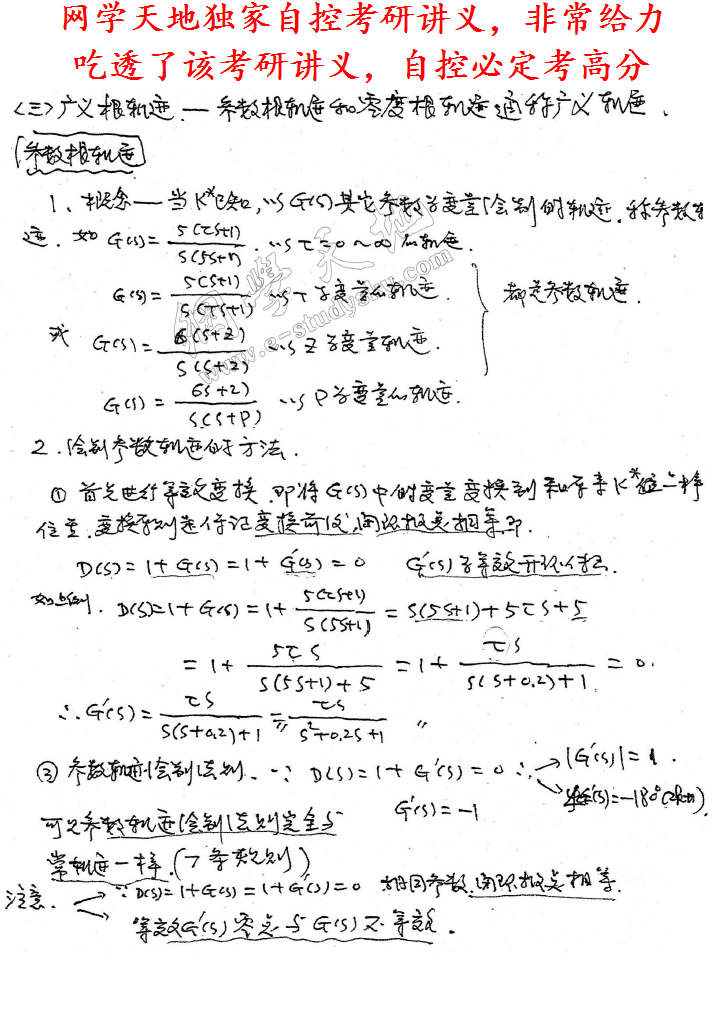 网学天地独家自控考研讲义，非常给力
吃透了该考研讲义，自控必定考高分
<三>广义根轨迹 — 参数根轨迹和零度根轨迹通称广义轨迹.
参数根轨迹
1、概念 — 当K*已知,以G(s)其它参数为变量绘制的轨迹.称参数轨
迹. 如 G(s)=5(τs+1)/s(5s+1) .以τ=0~∞的轨迹.
G(s)=5(s+1)/s(τs+1) 以τ为变量的轨迹.
都是参数轨迹.
或 G(s)=6(s+z)/s(s+2) 以z为变量轨迹.
G(s)=6(s+2)/s(s+P) 以P为变量的轨迹.
2.绘制参数轨迹的方法.
① 首先进行等效变换.即将G(s)中的变量变换到和原来K*位置一样
位置.变换原则是保证变换前后,闭环极点相等即.
D(s)=1+G(s)=1+G'(s)=0 G'(s)为等效开环传函.
如上例. D(s)=1+G(s)=1+5(τs+1)/s(5s+1)=s(5s+1)+5τs+5
=1+5τs/s(5s+1)+5=1+τs/s(s+0.2)+1=0.
∴G'(s)=τs/s(s+0.2)+1=τs/s²+0.2s+1 〃
② 参数轨迹绘制法则. ∵ D(s)=1+G'(s)=0 ∴ |G'(s)|=1.
G'(s)=-1 ∠G'(s)=-180°(2k+1).
可见参数轨迹绘制法则完全与
常轨迹一样.(7条规则)
注意. ∵D(s)=1+G(s)=1+G'(s)=0 相同参数.闭环极点相等.
等效G'(s)零点与G(s)不等效.